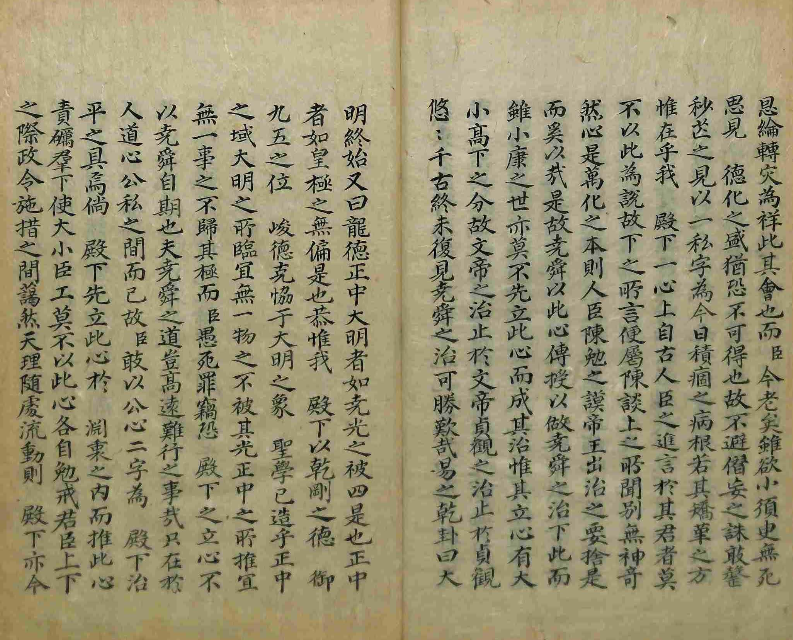 恩綸轉灾為祥此其會也而臣今老矣雖欲小須臾無死
思見 德化之盛猶恐不可得也故不避僭妄之誅敢罄
秒芒之見以一私字為今日積痼之病根若其矯革之方
惟在乎我 殿下一心上自古人臣之進言於其君者莫
不以此為說故下之所言便屬陳談上之所聞別無神奇
然心是萬化之本則人臣陳勉之謨帝王出治之要捨是
而奚以㦲是故尭舜以此心傳授以做尭舜之治下此而
雖小康之世亦莫不先立此心而成其治惟其立心有大
小高下之分故文帝之治止於文帝貞觀之治止於貞觀
悠〻千古終未復見尭舜之治可勝歎㦲易之乾卦曰大
明終始又曰龍德正中大明者如尭光之被四是也正中
者如皇極之無偏是也恭惟我 殿下以乾剛之德 御
九五之位 峻德克恊于大明之象 聖學已造乎正中
之域大明之所臨宜無一物之不被其光正中之所推宜
無一事之不歸其極而臣愚死罪竊恐 殿下之立心不
以尭舜自期也夫尭舜之道豈高遠難行之事㦲只在於
人道心公私之間而已故臣敢以公心二字為 殿下治
平之具焉倘 殿下先立此心於 淵衷之内而推此心
責礪羣下使大小臣工莫不以此心各自勉戒君臣上下
之際政令施措之間藹然天理随處流動則 殿下亦今